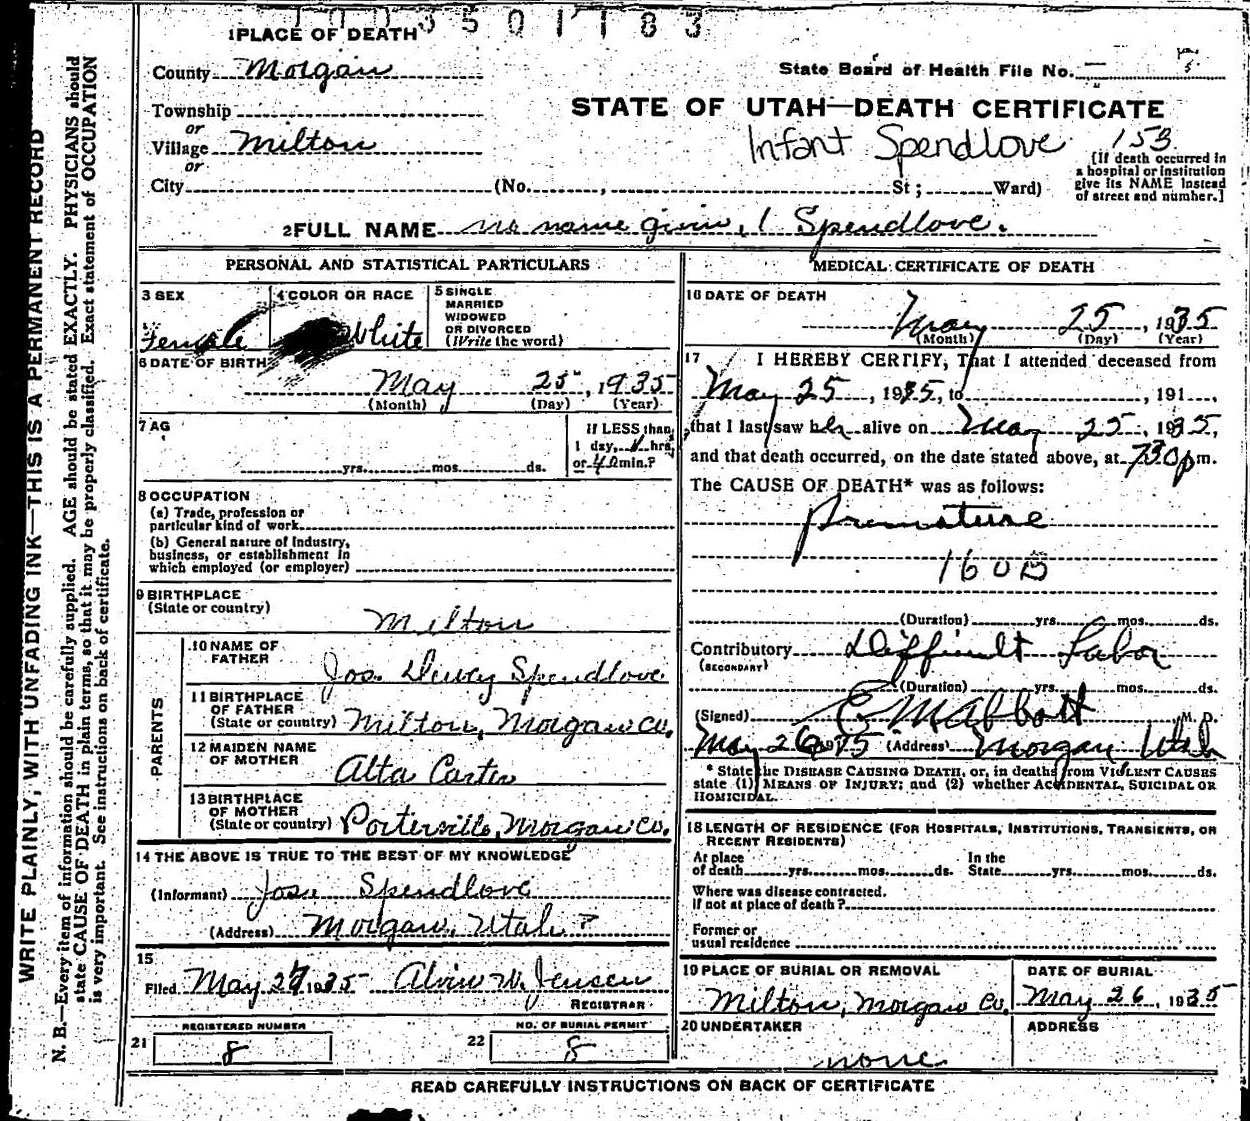 1003501183
1 PLACE OF DEATH
County Morgan
State Board of Health File No.
Township
or
STATE OF UTAH—DEATH CERTIFICATE
Village Milton
Infant Spendlove 153
or
City (No. , St; Ward)
[If death occurred in
a hospital or institution
give its NAME instead
of street and number.]
2 FULL NAME no name given, 1 Spendlove.
PERSONAL AND STATISTICAL PARTICULARS
3 SEX
Female
4 COLOR OR RACE
White
5 SINGLE
MARRIED
WIDOWED
OR DIVORCED
(Write the word)
6 DATE OF BIRTH
May 25, 1935
(Month) (Day) (Year)
7 AG
yrs. mos. ds.
If LESS than
1 day, hrs.
or 40 min.?
8 OCCUPATION
(a) Trade, profession or
particular kind of work
(b) General nature of Industry,
business, or establishment in
which employed (or employer)
9 BIRTHPLACE
(State or country)
Milton
PARENTS
10 NAME OF
FATHER
Jos. Dewey Spendlove
11 BIRTHPLACE
OF FATHER
(State or country) Milton, Morgan Co.
12 MAIDEN NAME
OF MOTHER
Alta Carter
13 BIRTHPLACE
OF MOTHER
(State or country) Porterville, Morgan Co.
14 THE ABOVE IS TRUE TO THE BEST OF MY KNOWLEDGE
(Informant) Jos. Spendlove
(Address) Morgan, Utah
15
Filed May 27 1935 Alvin W. Jensen
REGISTRAR
REGISTERED NUMBER
21 8
NO. OF BURIAL PERMIT
22 8
MEDICAL CERTIFICATE OF DEATH
16 DATE OF DEATH
May 25, 1935
(Month) (Day) (Year)
17 I HEREBY CERTIFY, That I attended deceased from
May 25, 1935, to , 191 ,
that I last saw her alive on May 25, 1935,
and that death occurred, on the date stated above, at 730 pm.
The CAUSE OF DEATH* was as follows:
Premature
160B
(Duration) yrs. mos. ds.
Contributory Difficult Labor
(SECONDARY)
(Duration) yrs. mos. ds.
(Signed) C M Abbott M. D.
May 26 1935 (Address) Morgan Utah
* State the DISEASE CAUSING DEATH, or, in deaths from VIOLENT CAUSES
state (1) MEANS OF INJURY; and (2) whether ACCIDENTAL, SUICIDAL OR
HOMICIDAL.
18 LENGTH OF RESIDENCE (FOR HOSPITALS, INSTITUTIONS, TRANSIENTS, OR
RECENT RESIDENTS)
At place In the
of death yrs. mos. ds. State yrs. mos. ds.
Where was disease contracted.
If not at place of death?
Former or
usual residence
19 PLACE OF BURIAL OR REMOVAL
Milton, Morgan Co.
DATE OF BURIAL
May 26, 1935
20 UNDERTAKER
none
ADDRESS
READ CAREFULLY INSTRUCTIONS ON BACK OF CERTIFICATE
WRITE PLAINLY, WITH UNFADING INK—THIS IS A PERMANENT RECORD
N. B.—Every item of information should be carefully supplied. AGE should be stated EXACTLY. PHYSICIANS should
state CAUSE OF DEATH in plain terms, so that it may be properly classified. Exact statement of OCCUPATION
is very important. See instructions on back of certificate.